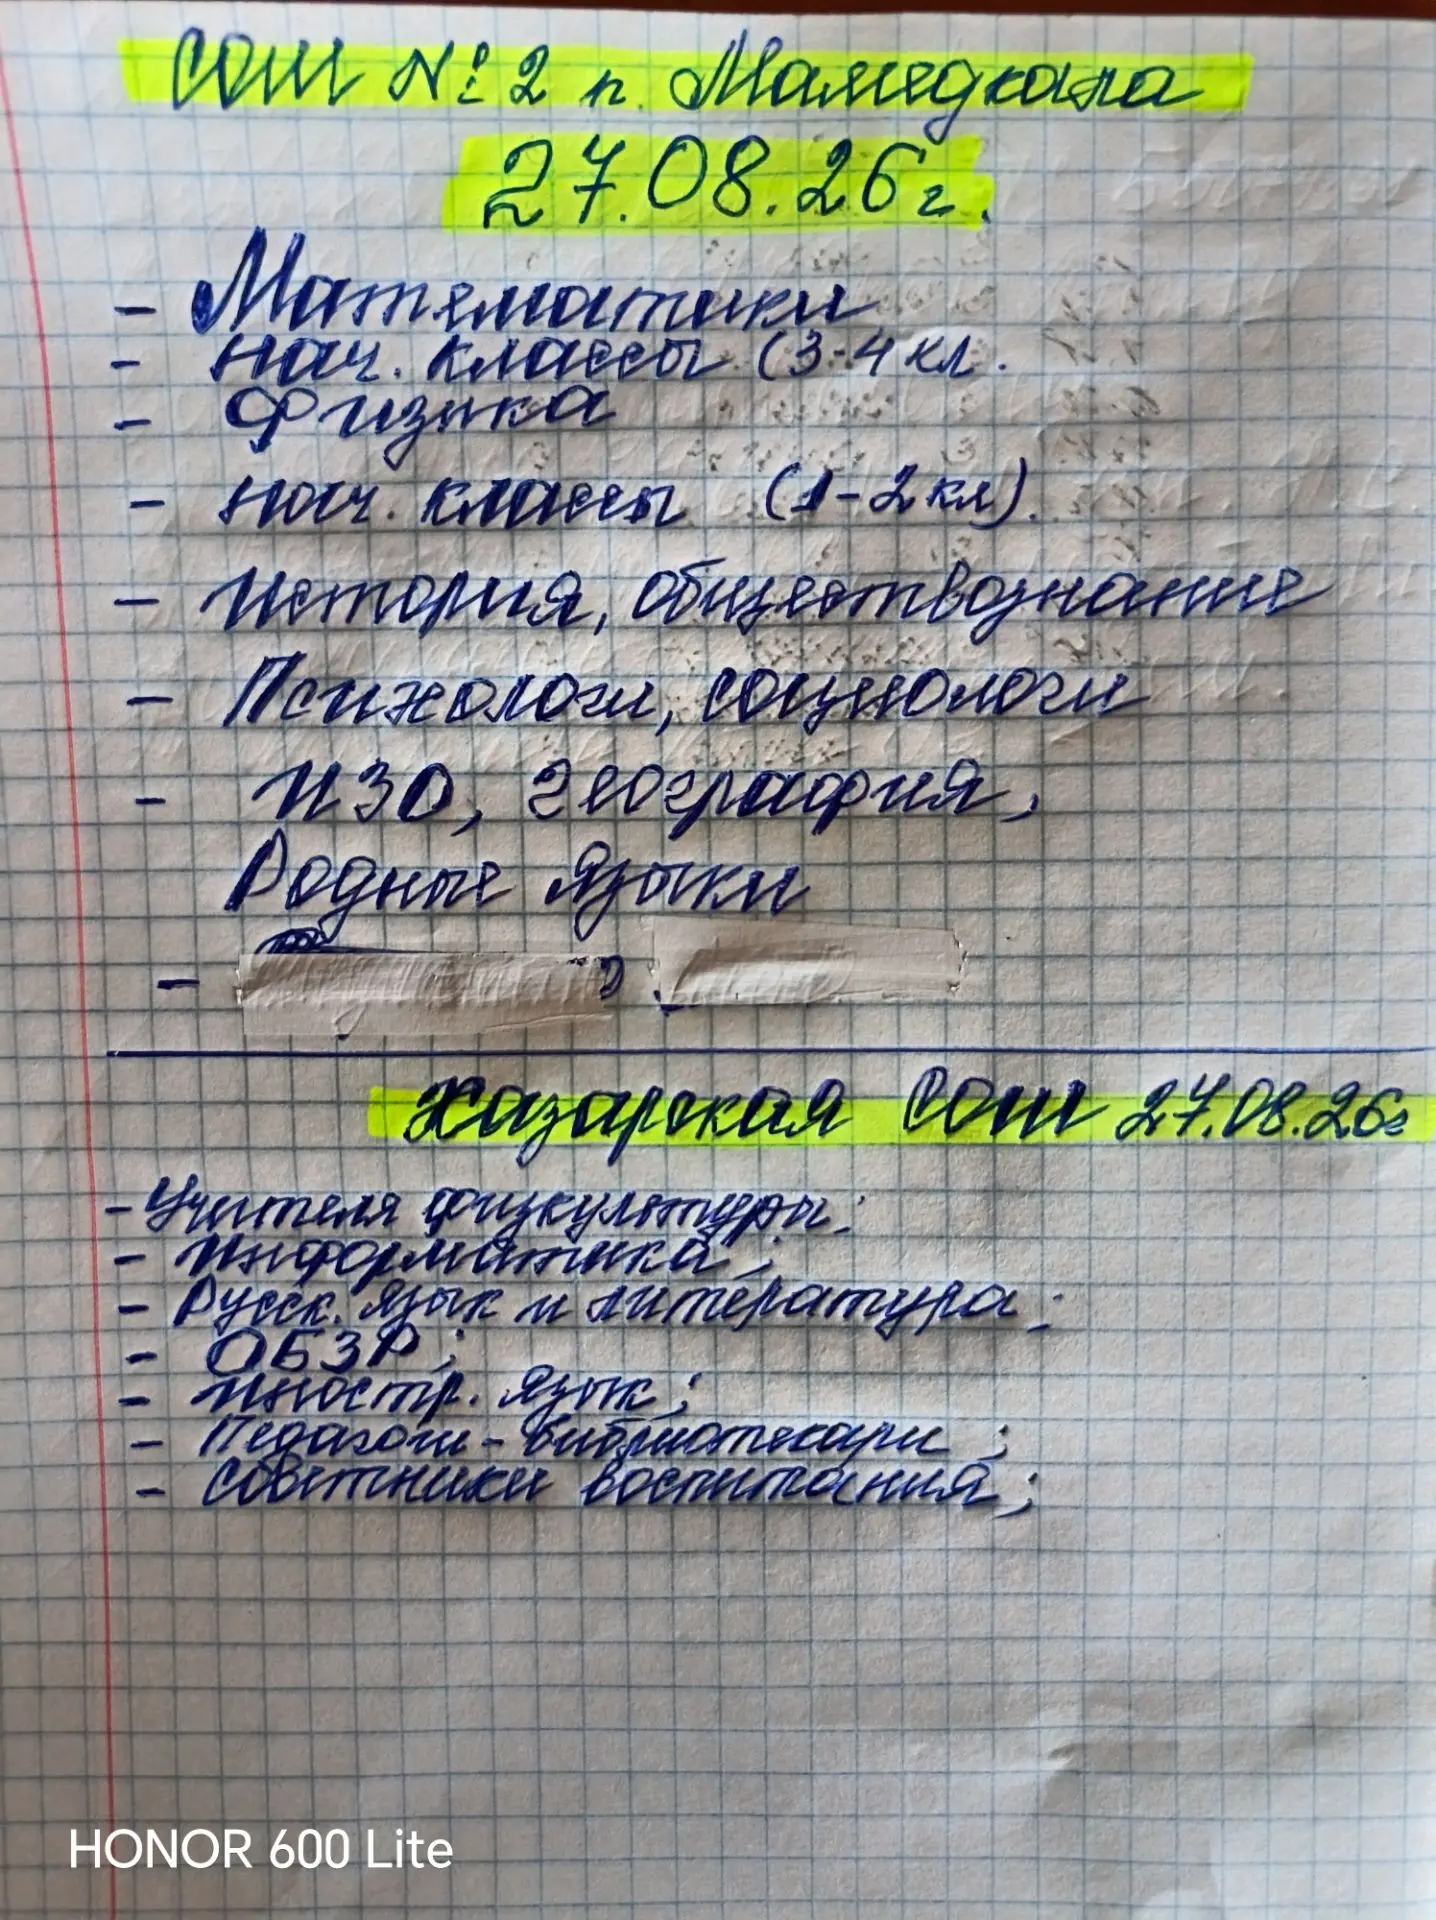 СОШ №2 п. Мамедкала
27.08.26г.
- Математики
- нач. классы (3-4 кл.
- Физика
- нач. классы (1-2 кл).
- история, обществознание
- Психологи, социологи
- ИЗО, география,
Родные языки
-
Хазарская СОШ 27.08.26г
- Учителя физкультуры;
- информатика;
- Русск. язык и литература;
- ОБЗР;
- иностр. язык;
- Педагоги-библиотекари;
- советники воспитания;
HONOR 600 Lite